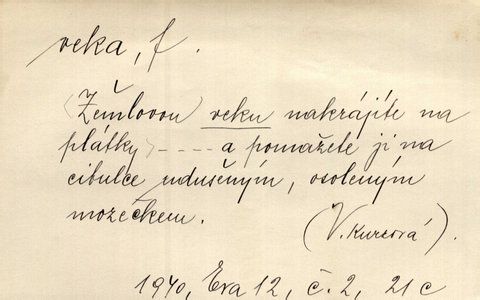 veka, f.
(Žemlovou) veku nakrájíte na
plátky) - - - - a pomažete ji na
cibulce uduseným, osoleným
mozečkem.
(V. Kurcová).
1940, Eva 12, č. 2, 21 c